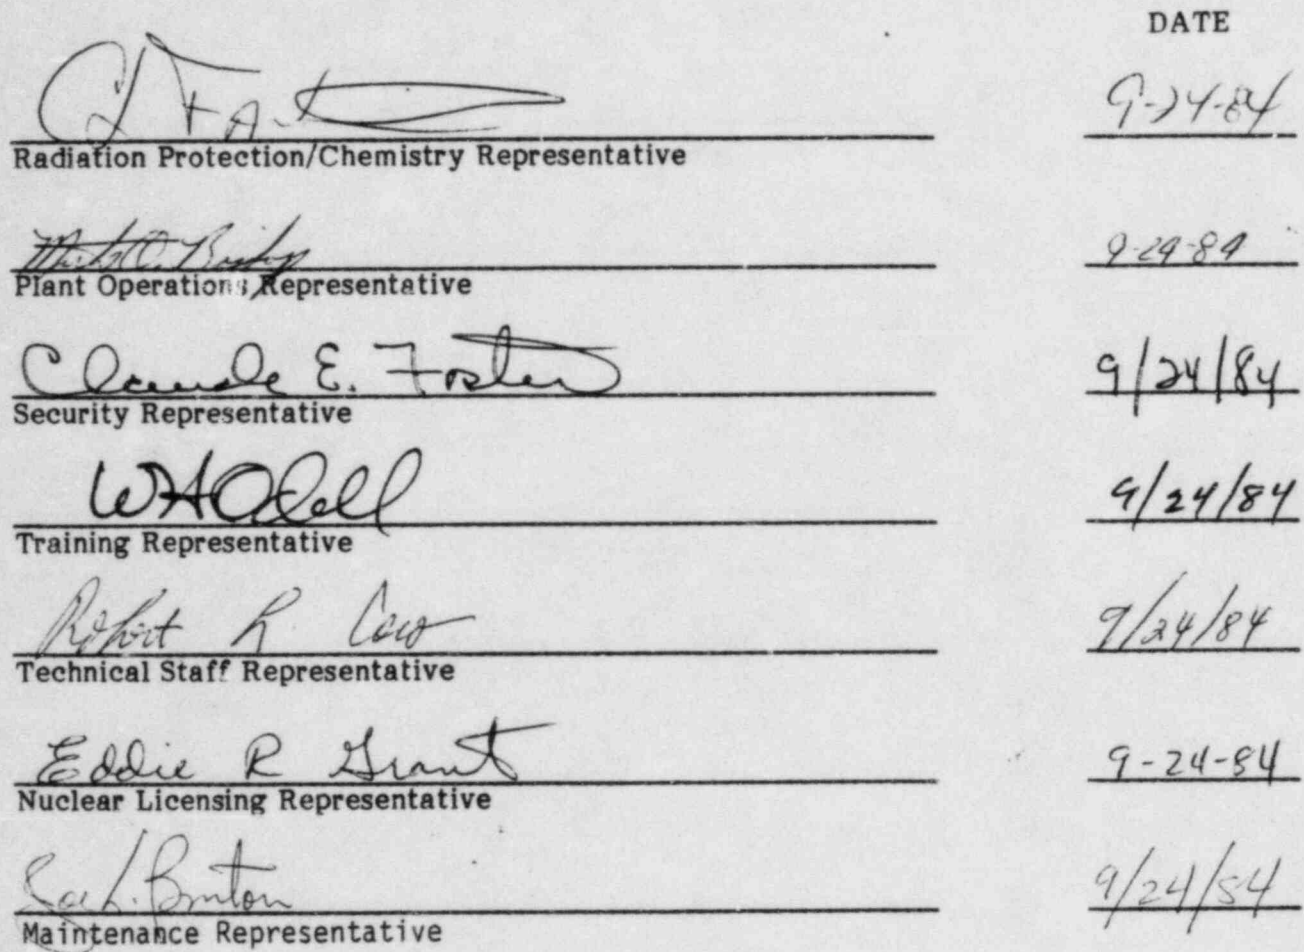 DATE
9-24-84
Radiation Protection/Chemistry Representative
9-24-84
Plant Operations Representative
Claude E. Foster 9/24/84
Security Representative
W H Odell 9/24/84
Training Representative
Robert R. 9/24/84
Technical Staff Representative
Eddie R Grant 9-24-84
Nuclear Licensing Representative
9/24/84
Maintenance Representative